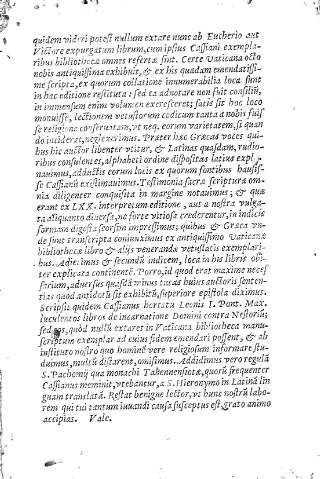 quidem videri potest nullum extare nunc ab Eucherio aut
Victore expurgatum librum, cum ipsius Cassiani exempla-
ribus bibliothecæ omnes refertæ sint. Certe Vaticana octo
nobis antiquissima exhibuit, & ex his quædam emendatissi-
me scripta, ex quorum collatione innumerabilia loca sunt
in hac editione restituta: sed ea adnotare non fuit consiliū,
in immensum enim volumen excresceret; satis sit hoc loco
monuisse, lectionem vetustorum codicum tanta a nobis fuis-
se religione conseruatam, vt neq. eorum varietatem, si quan
do inciderat, neglexerimus. Præter hæc Græcas voces qui-
bus hic auctor libenter vtitur, & Latinas quasdam, rudio-
ribus consulentes, alphabeti ordine dispositas latius expl
nauimus, adductis eorum locis ex quorum fontibus hausis-
se Cassianū existimauimus. Testimonia sacræ scripturæ om-
nia diligenter conquisita in margine notauimus; & quæ
erant ex LXX. interpretum editione, aut a nostra vulga-
ta aliquanto diuersa, ne forte vitiosa crederentur, in indicis
formam digesta seorsim impressimus; quibus & Græca vn-
de sunt transcripta coniunximus ex antiquissimo Vaticanæ
bibliothecæ libro & alijs venerandæ vetustatis exemplari-
bus. Adiecimus & secundū indicem, loca in his libris obi-
ter explicata continentē. Porro, id quod erat maxime neces
sarium, aduersus quasdā minus tutas huius auctoris senten-
tias quod antidotū sit exhibitū, superiore epistola diximus.
Scripsit quidem Cassianus hortatu Leonis I. Pont. Max.
luculentos libros de incarnatione Domini contra Nestoriū;
sed eos, quòd nullū extaret in Vaticana bibliotheca manu-
scriptum exemplar ad cuius fidem emendari possent, & ab
instituto nostro quo hominē vere religiosum informare stu-
duimus, multū distarent, omisimus. Addidimus vero regulā
S. Pachomij qua monachi Tabennensiotæ, quorū frequenter
Cassianus meminit, vtebantur, a S. Hieronymo in Latinā lin
guam translatā. Restat benigne lector, vt hunc nostrū labo-
rem qui tui tantum iuuandi causa susceptus est, grato animo
accipias. Vale.